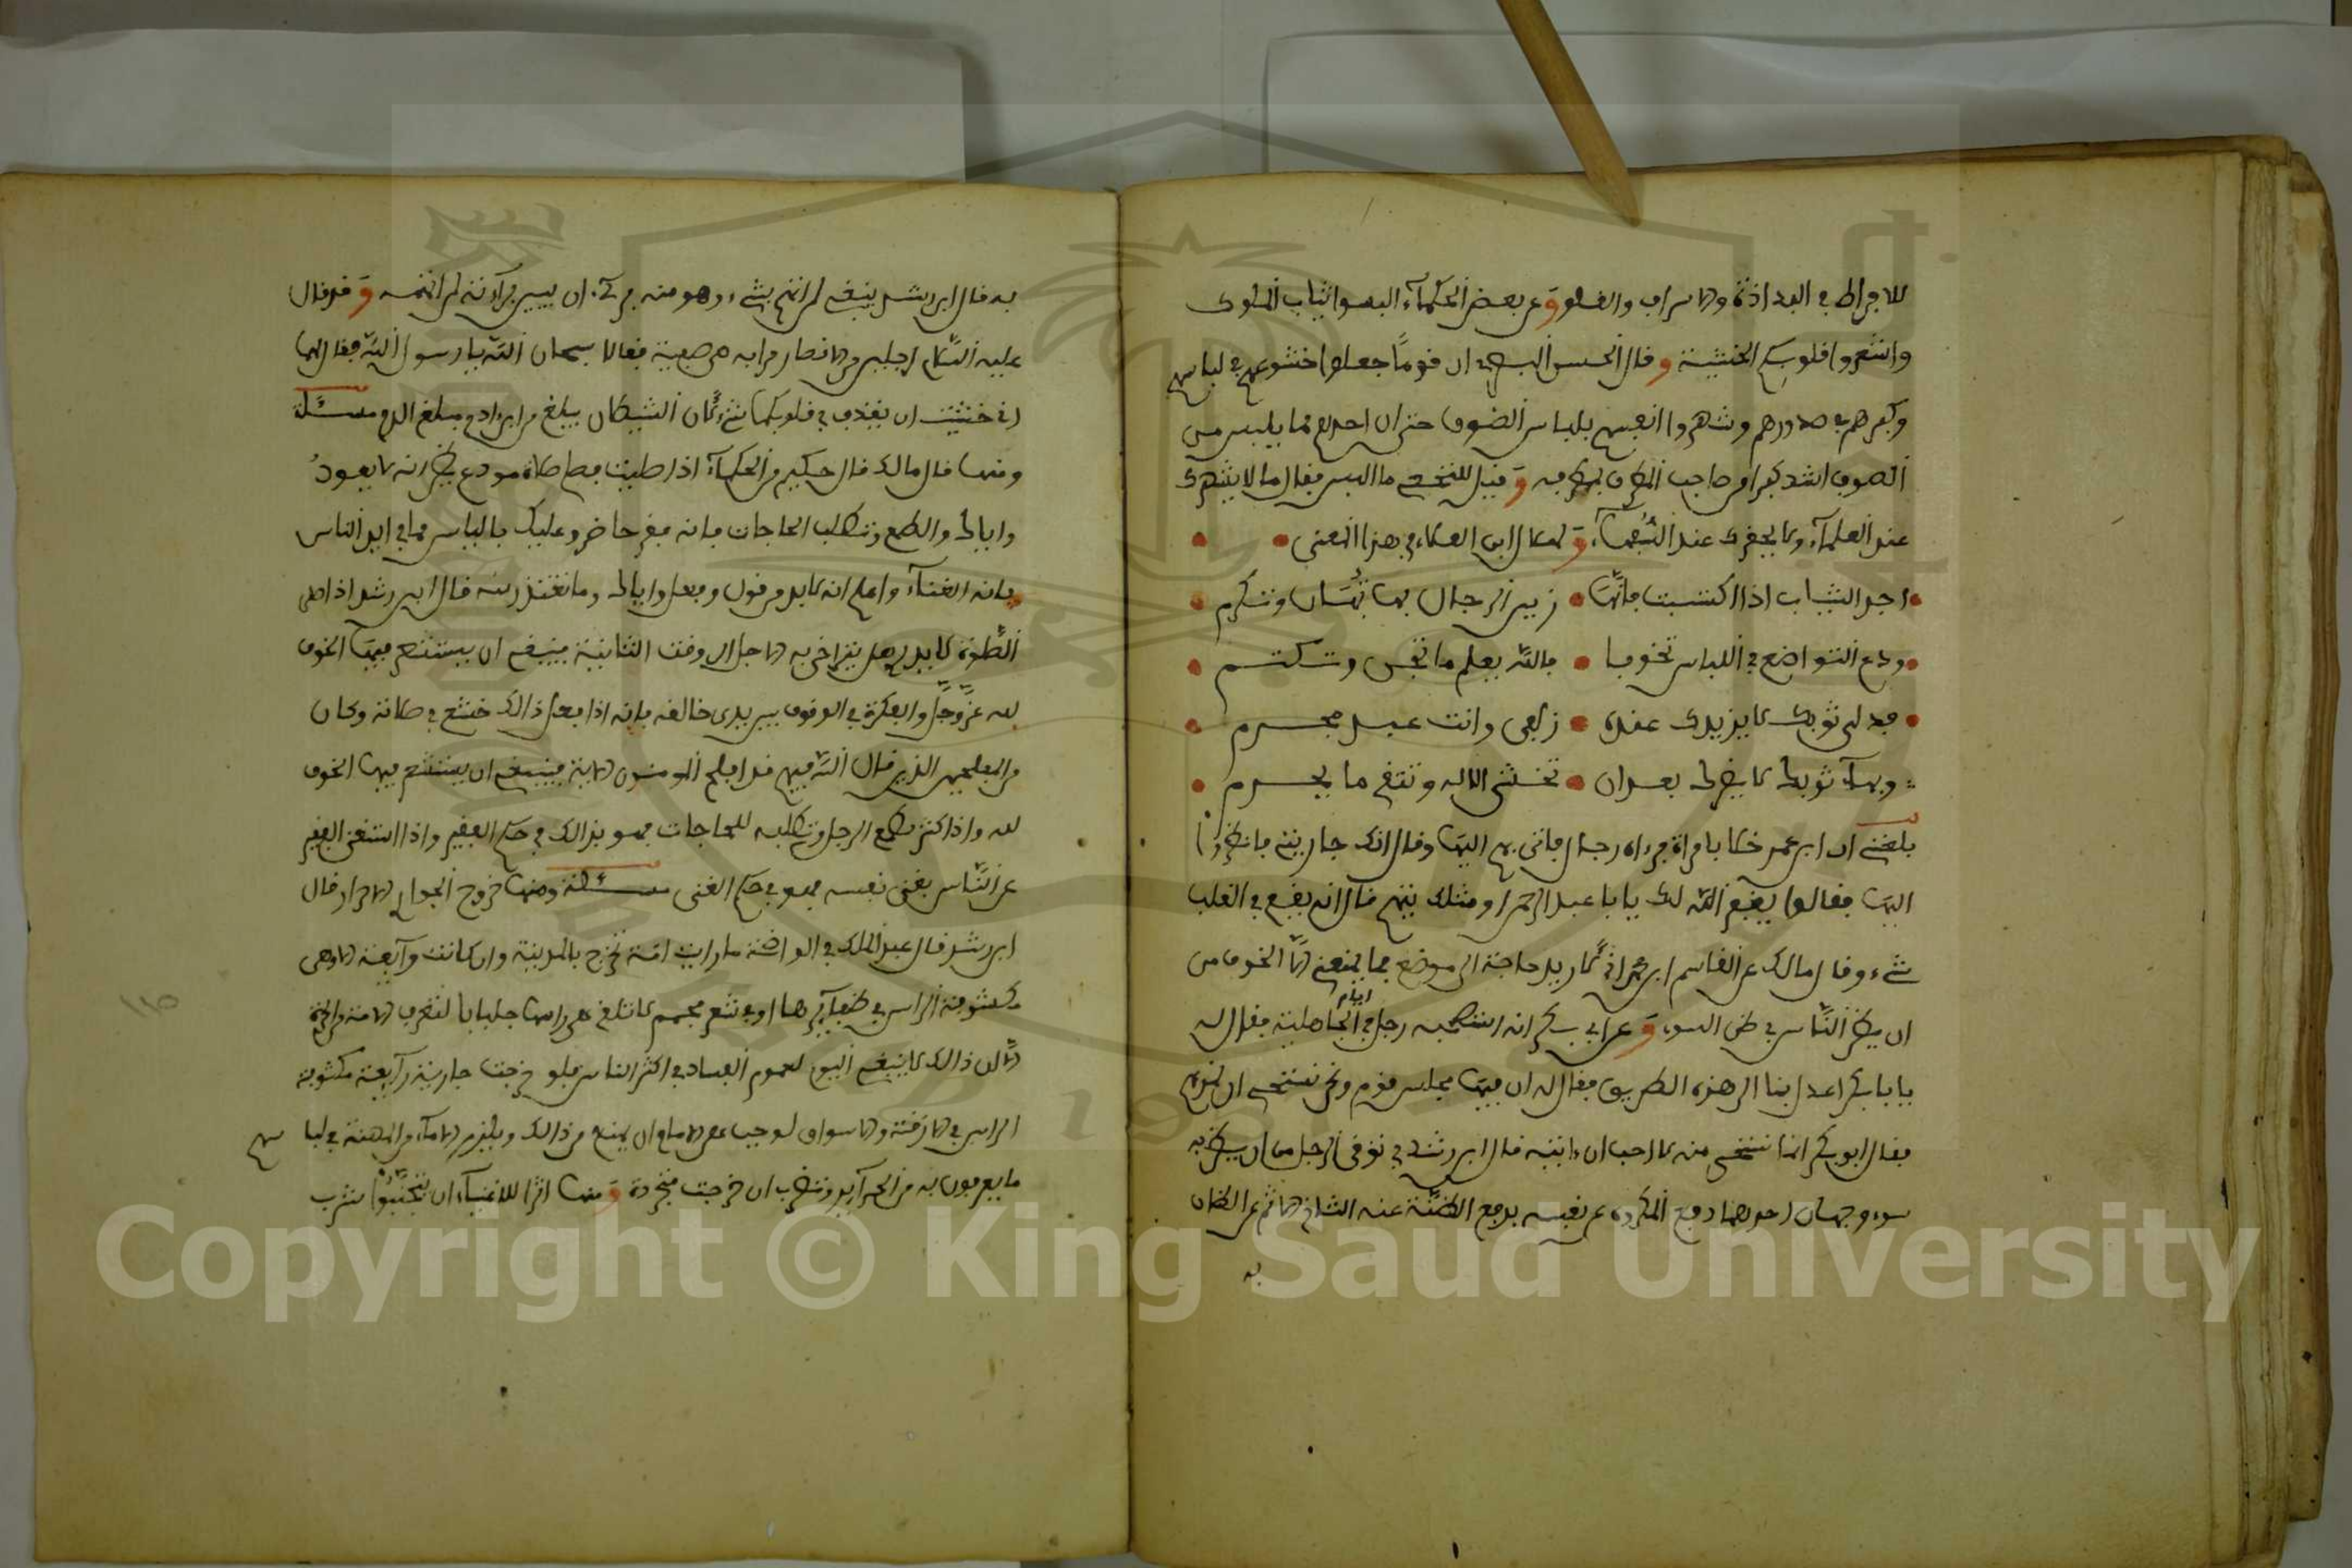 للافراط في البذاذة والاسراف والغلو وعن بعض الحكماء البسوا ثياب الملوك
واشعروا قلوبكم الخشية وقال الحسن البصري ان قوما جعلوا خشوعهم في لباسهم
وكبرهم في صدورهم وشهروا انفسهم بلباس الصوف حتى ان احدهم بما يلبس من
الصوف اشد كبرا من صاحب المطرف بمطرفه وقيل للنخعي ما البس فقال ما لا يشهرك
عند العلماء ولا يحقرك عند السفهاء
اجد الثياب اذا اكتسيت فانها زين الرجال بها تهان وتكرم
ودع التواضع في اللباس تخوفا فالله يعلم ما تجن وتكتم
فدني ثوبك لا يزيدك عنده زلفى وانت عبد مجرم
وبهاء ثوبك لا يضرك بعد ان تخشى الاله وتتقي ما يحرم
بلغني ان ابن عمر خلا بامراة فرءاه رجال فاتى بهم اليها وقال انها جاريتي فانظروا
اليها فقالوا يغفر الله لك يا با عبد الرحمن او مثلك يتهم قال انه يقع في القلب
شيء وقال مالك عن القاسم ابن محمد اني لاريد حاجة الى موضع فما يمنعني الا الخوف من
ان يظن الناس في ظن السوء وعن ابي بكر انه استصحبه رجل في ايام الجاهلية فقال له
يا با بكر اعدل بنا الى هذه الطريق فقال له ان فيها مجلس قوم ونحن نستحي ان نمر بهم
فقال ابو بكر انما نستحي منه لا احب ان ءاتيه قال ابن رشد في توقي الرجل من ان يظن به
سوء وجهان احدهما دفع المكروه عن نفسه بدفع الظنة عنه الثاني الاثم عن الظان
به
به قال ابن رشد ينبغي لمن اتهم بشيء وهو منه بريء ان يبين براءته لمن اتهمه وقد قال
عليه السلام لرجلين من الانصار مرا به مع صفية فقالا سبحان الله يا رسول الله فقال لهما
اني خشيت ان يقذف في قلوبكما شيء لان الشيطان يبلغ من ابن ادم مبلغ الدم مسئلة
ومنها قال مالك قال حكيم من الحكماء اذا صليت فصل صلاة مودع يظن انه لا يعود
واياك والطمع وتطلب الحاجات فانه فقر حاضر وعليك بالياس مما في ايدي الناس
فانه الغناء واعلم انه لا بد من قول وفعل واياك وما تعتذر منه قال ابن رشد اذا صلى
الصلوة لا يدري هل يتراخى به الاجل الى وقت الثانية ينبغي ان يستشعر فيها الخوف
لله عز وجل والفكرة في الوقوف بين يدي خالقه فانه اذا فعل ذالك خشع في صلاته وكان
من المفلحين الذين قال الله فيهم قد افلح المومنون الاية فينبغي ان يستشعر فيها الخوف
لله واذا كثر طمع الرجل وتطلبه للحاجات فهو بذالك في حكم الفقير واذا استغنى الفقير
عن الناس بغنى نفسه فهو في حكم الغنى مسئلة ومنها خروج الجوار الاحرار قال
ابن رشد قال عبد الملك في الواضحة ما رايت امة تخرج بالمدينة وان كانت رآيعة الا وهي
مكشوفة الراس في ضفايرها او في شعر مجمم لا تلقي على راسها جلبابا لتعرف الامة من الحرة
الا ان ذالك لا ينبغي اليوم لعموم الفساد في اكثر الناس فلو خرجت جارية رآيعة مكشوفة
الراس في الازقة والاسواق لوجب على الامام ان يمنع من ذالك ويلزم الاماء من الهيئة في لباسهم
ما يعرفون به من الحرآير وتضرب ان خرجت متجردة ومنها اثرا للاغنياء ان يتجنبوا شرب